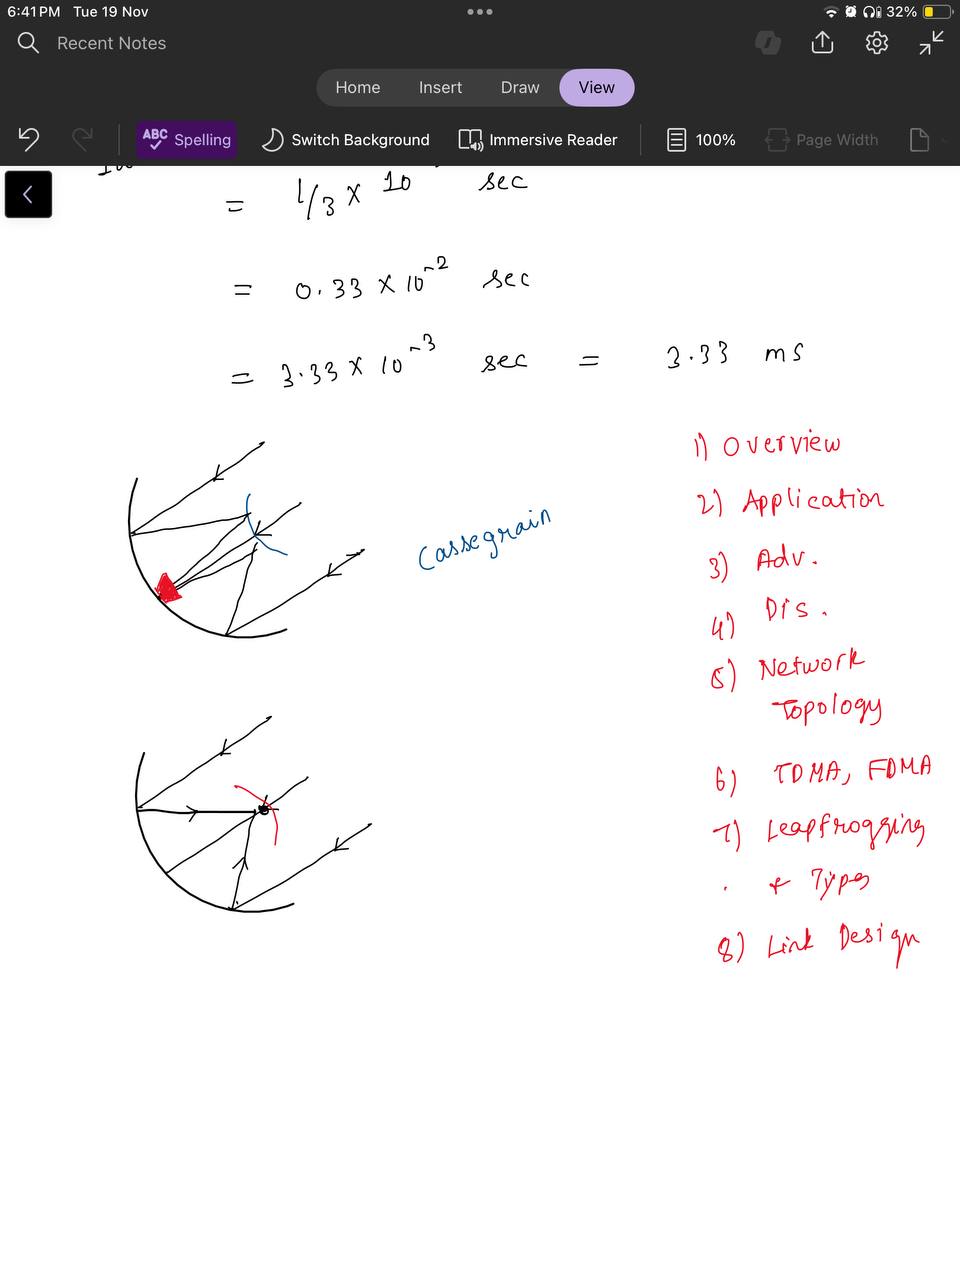 6:41 PM Tue 19 Nov
32%
Recent Notes
Home Insert Draw View
ABC Spelling Switch Background Immersive Reader 100% Page Width
= 1/3 × 10 sec
= 0.33 × 10^-2 sec
= 3.33 × 10^-3 sec = 3.33 ms
Cassegrain
1) Overview
2) Application
3) Adv.
4) Dis.
5) Network
Topology
6) TDMA, FDMA
7) Leapfrogging
+ Types
8) Link Design